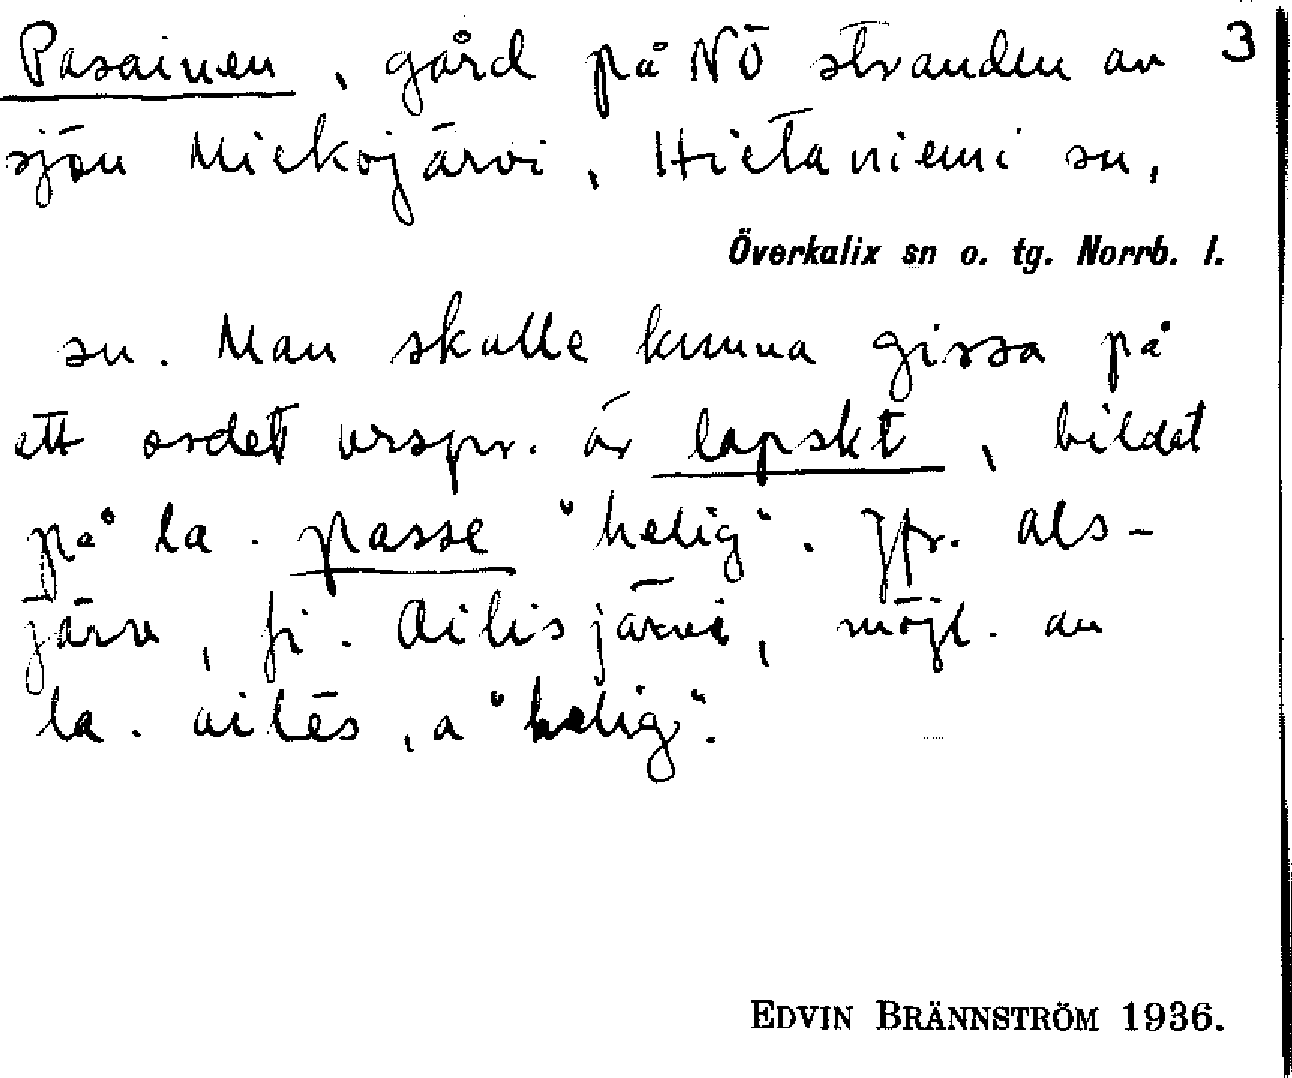 Pasainen, gård på NÖ stranden av 3
sjön Miekojärvi, Hietaniemi sn,
Överkalix sn o. tg. Norrb. l.
sn. Man skulle kunna gissa på
ett ordet urspr. är lapskt, bildat
på la. passe "helig". Jfr. Als-
järv, fi. Ailisjärvi, möjl. av
la. ailēs, a "helig".
EDVIN BRÄNNSTRÖM 1936.